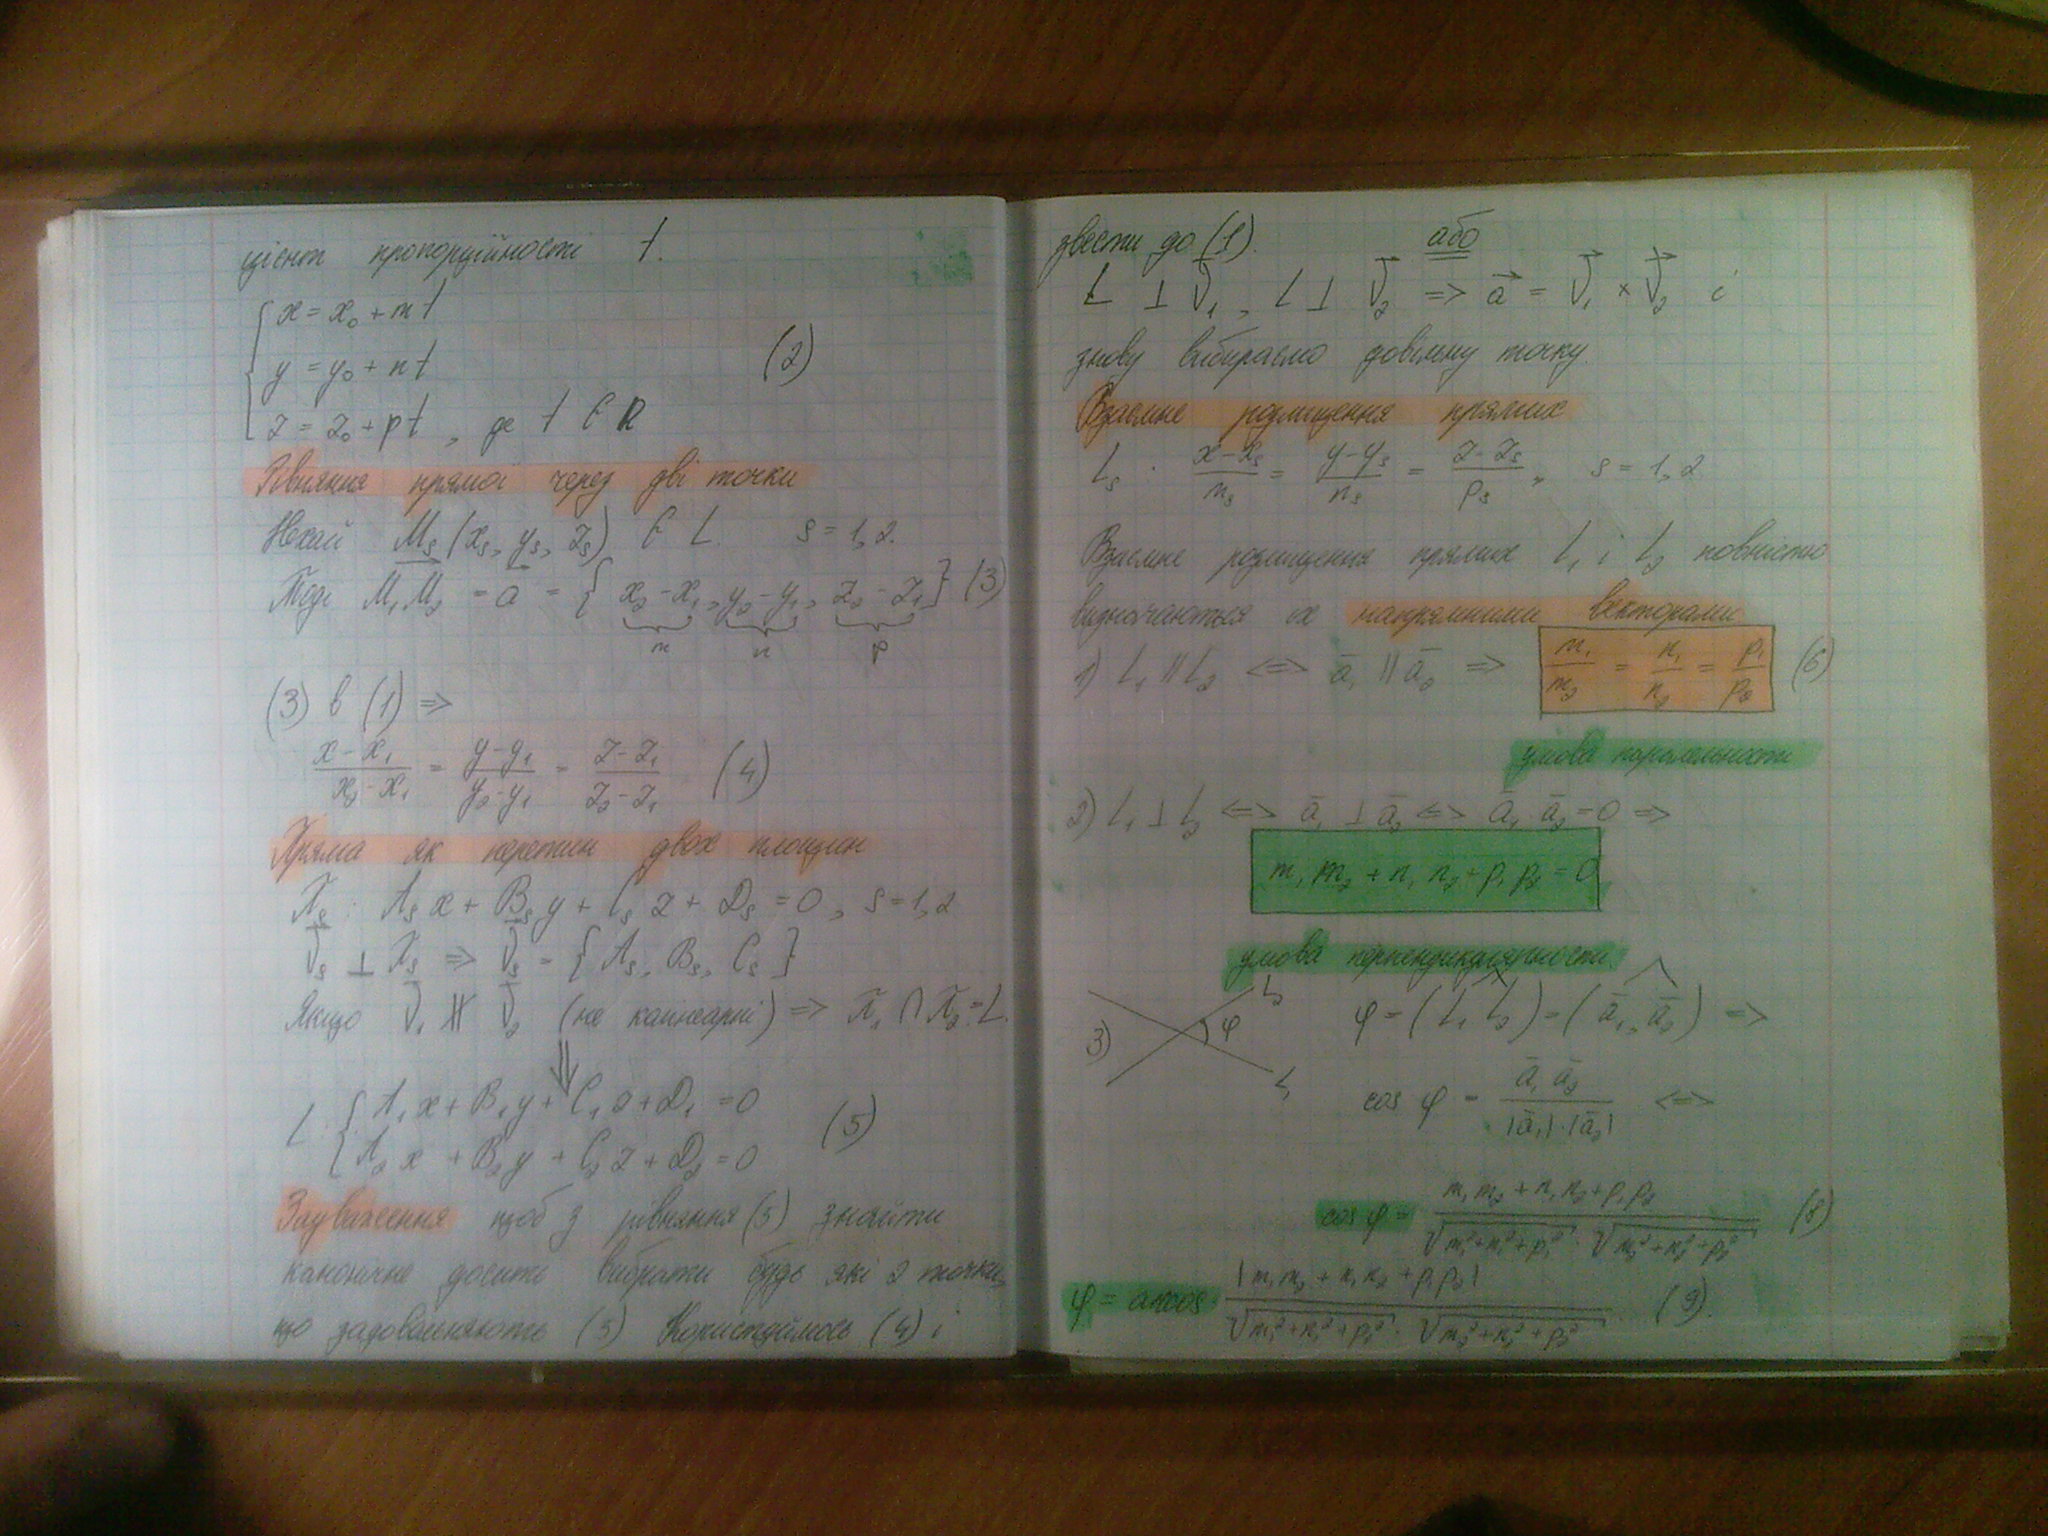 цієнт пропорційності t.
x = x₀ + mt
y = y₀ + nt (2)
z = z₀ + pt, де t ∈ R
Рівняння прямої через дві точки
Нехай Mₛ(xₛ, yₛ, zₛ) ∈ L. s = 1,2.
Тоді M₁M₂ = a = {x₂-x₁, y₂-y₁, z₂-z₁} (3)
m n p
(3) в (1) =>
(x-x₁)/(x₂-x₁) = (y-y₁)/(y₂-y₁) = (z-z₁)/(z₂-z₁) (4)
Пряма як перетин двох площин
π̄ₛ: Aₛx + Bₛy + Cₛz + Dₛ = 0, s = 1,2
ν̄ₛ ⊥ π̄ₛ => ν̄ₛ = {Aₛ, Bₛ, Cₛ}
Якщо ν̄₁ ∦ ν̄₂ (не колінеарні) => π̄₁ ∩ π̄₂ = L.
⇓
L: { A₁x + B₁y + C₁z + D₁ = 0
A₂x + B₂y + C₂z + D₂ = 0 (5)
Зауваження щоб з рівняння (5) знайти
канонічне досить вибрати будь які 2 точки,
що задовольняють (5) Користуємось (4) і
звести до (1). або
L ⊥ ν⃗₁, L ⊥ ν⃗₂ => a⃗ = ν⃗₁ × ν⃗₂ і
знову вибираємо довільну точку.
Взаємне розміщення прямих
Lₛ: (x-xₛ)/mₛ = (y-yₛ)/nₛ = (z-zₛ)/pₛ, s = 1,2
Взаємне розміщення прямих L₁ і L₂ повністю
визначаються їх напрямними векторами.
1) L₁ ∥ L₂ <=> ā₁ ∥ ā₂ => m₁/m₂ = n₁/n₂ = p₁/p₂ (6)
умова паралельності
2) L₁ ⊥ L₂ <=> ā₁ ⊥ ā₂ <=> ā₁·ā₂ = 0 =>
m₁m₂ + n₁n₂ + p₁p₂ = 0
умова перпендикулярності.
3) L₂ φ L₁ φ = (L₁^L₂) = (ā₁,^ā₂) =>
cos φ = ā₁ā₂/(|ā₁|·|ā₂|) <=>
cos φ = (m₁m₂ + n₁n₂ + p₁p₂)/(√(m₁²+n₁²+p₁²)·√(m₂²+n₂²+p₂²)) (8)
φ = arccos |m₁m₂ + n₁n₂ + p₁p₂|/(√(m₁²+n₁²+p₁²)·√(m₂²+n₂²+p₂²)) (9).